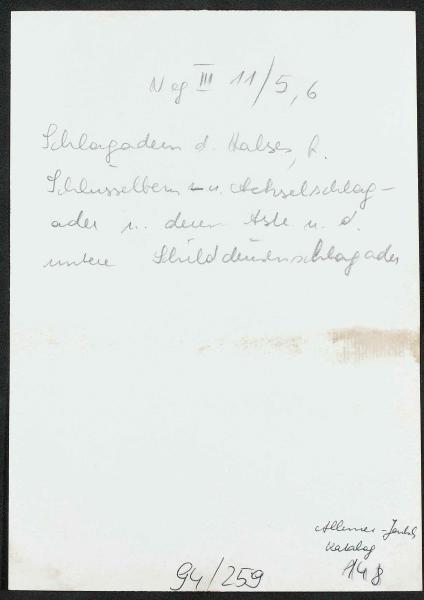 Neg III 11/5, 6
Schlagadern d. Halses, R.
Schlüsselbein- u. Achselschlag-
ader u. deren Äste u. d.
untere Schilddrüsenschlagader
Katalog
148
94/259